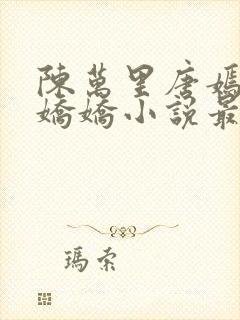 陳萬里唐嫣
嬌嬌小說最
瑪索